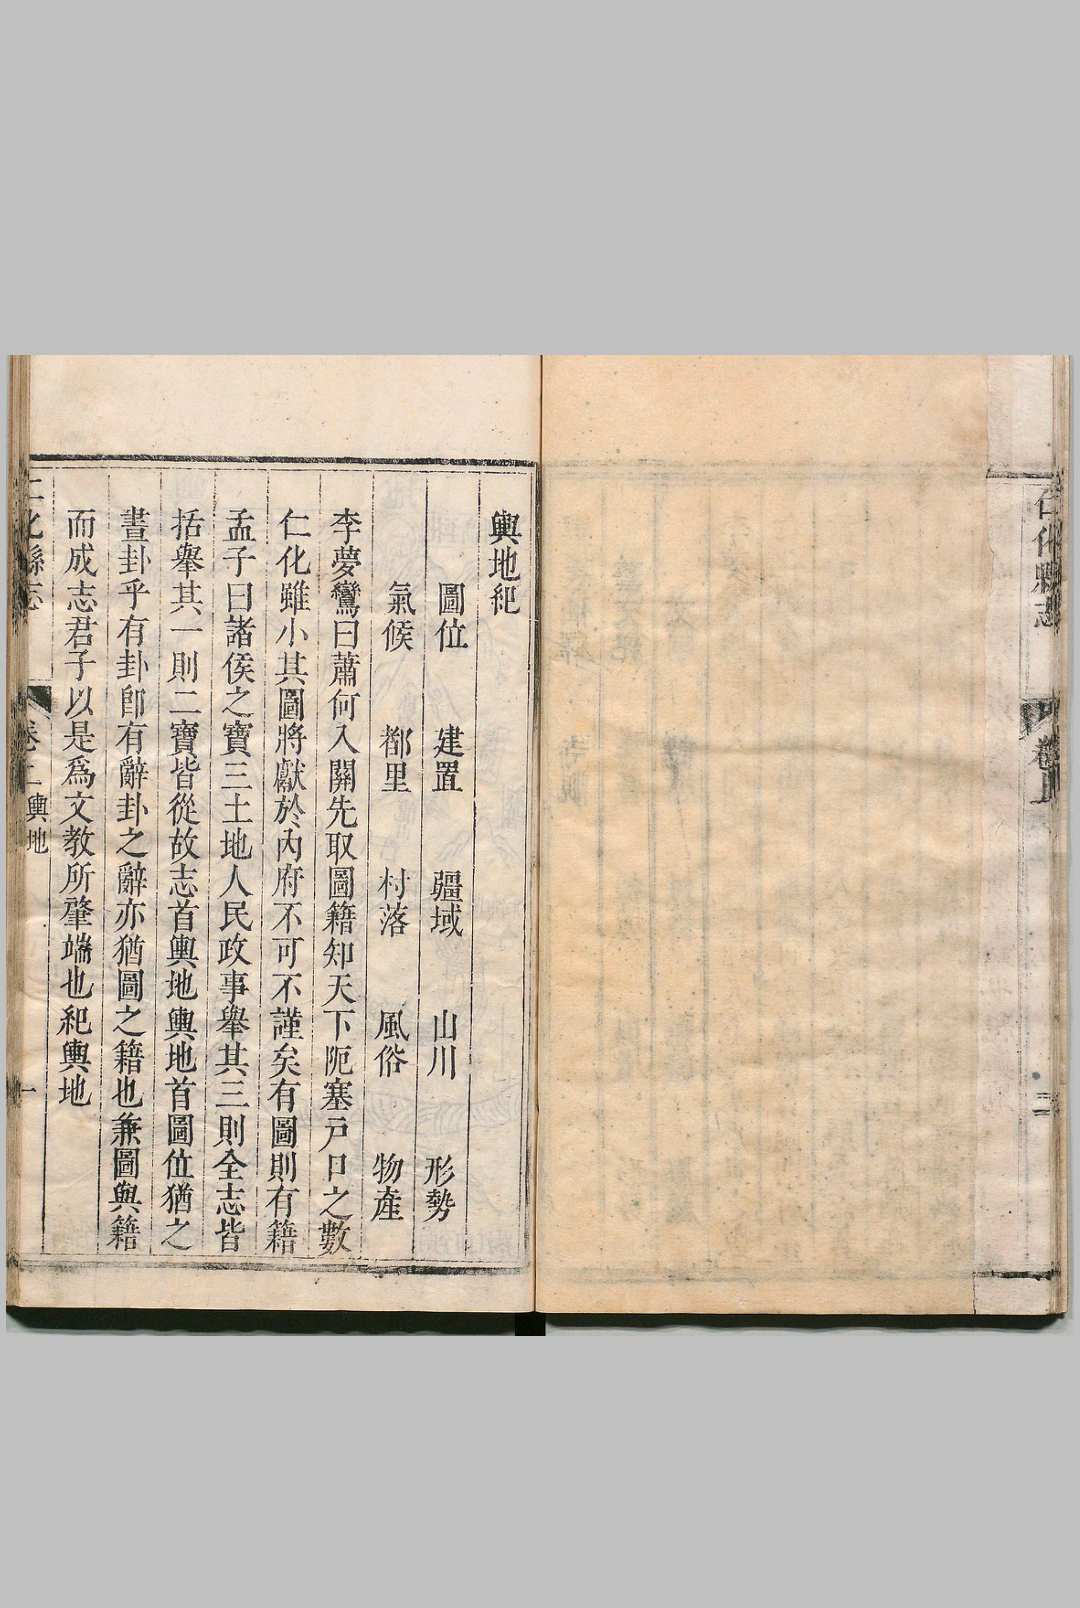 仁化縣志
卷
二
輿地紀
圖位 建置 疆域 山川 形勢
氣候 都里 村落 風俗 物產
李夢鸞曰蕭何入關先取圖籍知天下阨塞戸口之數
仁化雖小其圖將獻於內府不可不謹矣有圖則有籍
孟子曰諸侯之寶三土地人民政事舉其三則全志皆
括舉其一則二寶皆從故志首輿地輿地首圖位猶之
畫卦乎有卦卽有辭卦之辭亦猶圖之籍也兼圖與籍
而成志君子以是為文教所肇端也紀輿地
仁化縣志
卷二輿地
一